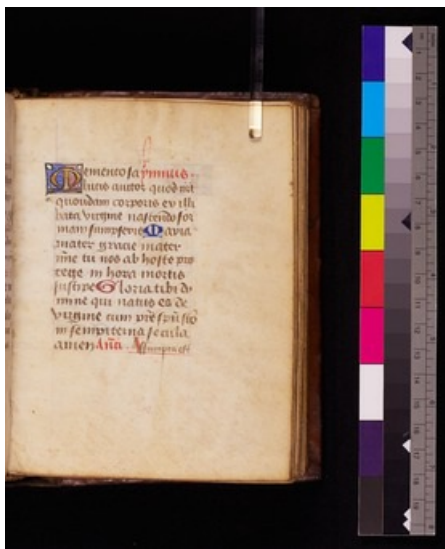 Memento sa ymnus.
lutis auctor quod nri
quondam corporis ex illi
bata virgine nascendo for
mam sumpseris Maria
mater gracie mater
mie tu nos ab hoste pro
tege in hora mortis
suscipe Gloria tibi do
mine qui natus es de
virgine cum pre spu sco
in sempiterna secula
amen Ana Assumpta est